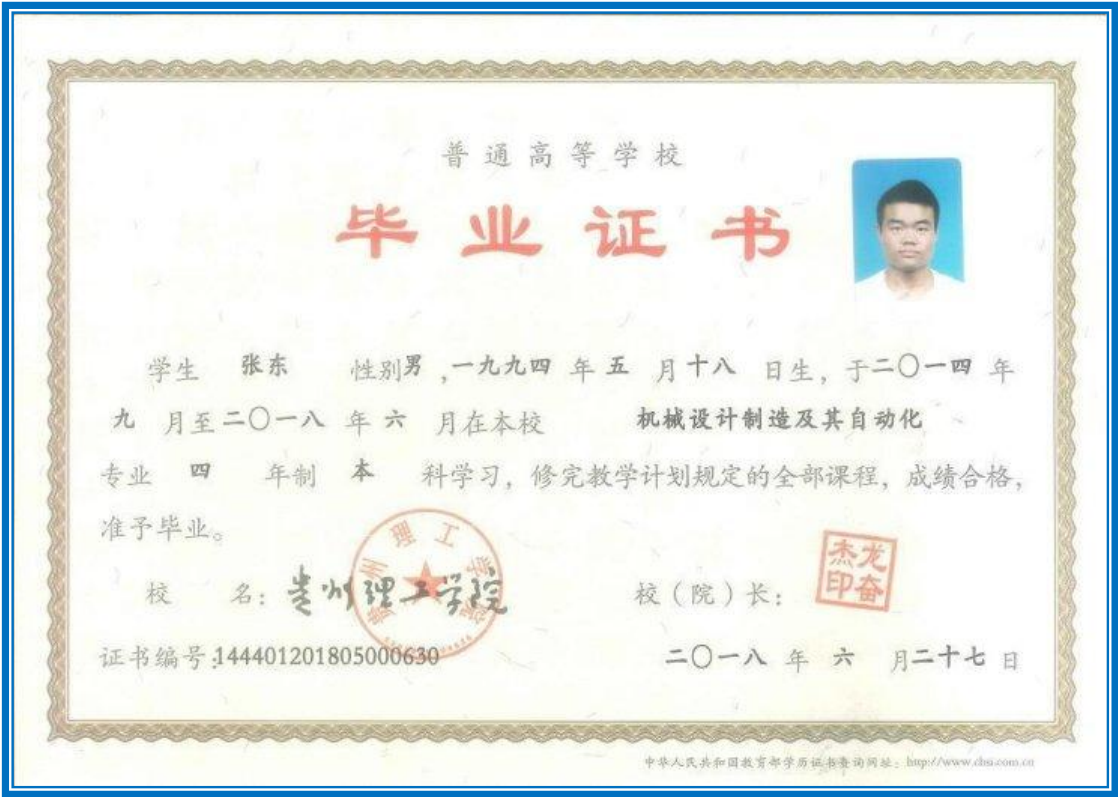 普通高等学校
毕业证书
学生 张东 性别男,一九九四 年 五 月十八 日生，于二〇一四 年
九 月至二〇一八 年 六 月在本校 机械设计制造及其自动化
专业 四 年制 本 科学习，修完教学计划规定的全部课程，成绩合格，
准予毕业。
贵州理工学院
杰龙印奋
校 名：贵州理工学院 校（院）长：
证书编号:144401201805000630 二〇一八 年 六 月二十七日
中华人民共和国教育部学历证书查询网址：http://www.chsi.com.cn